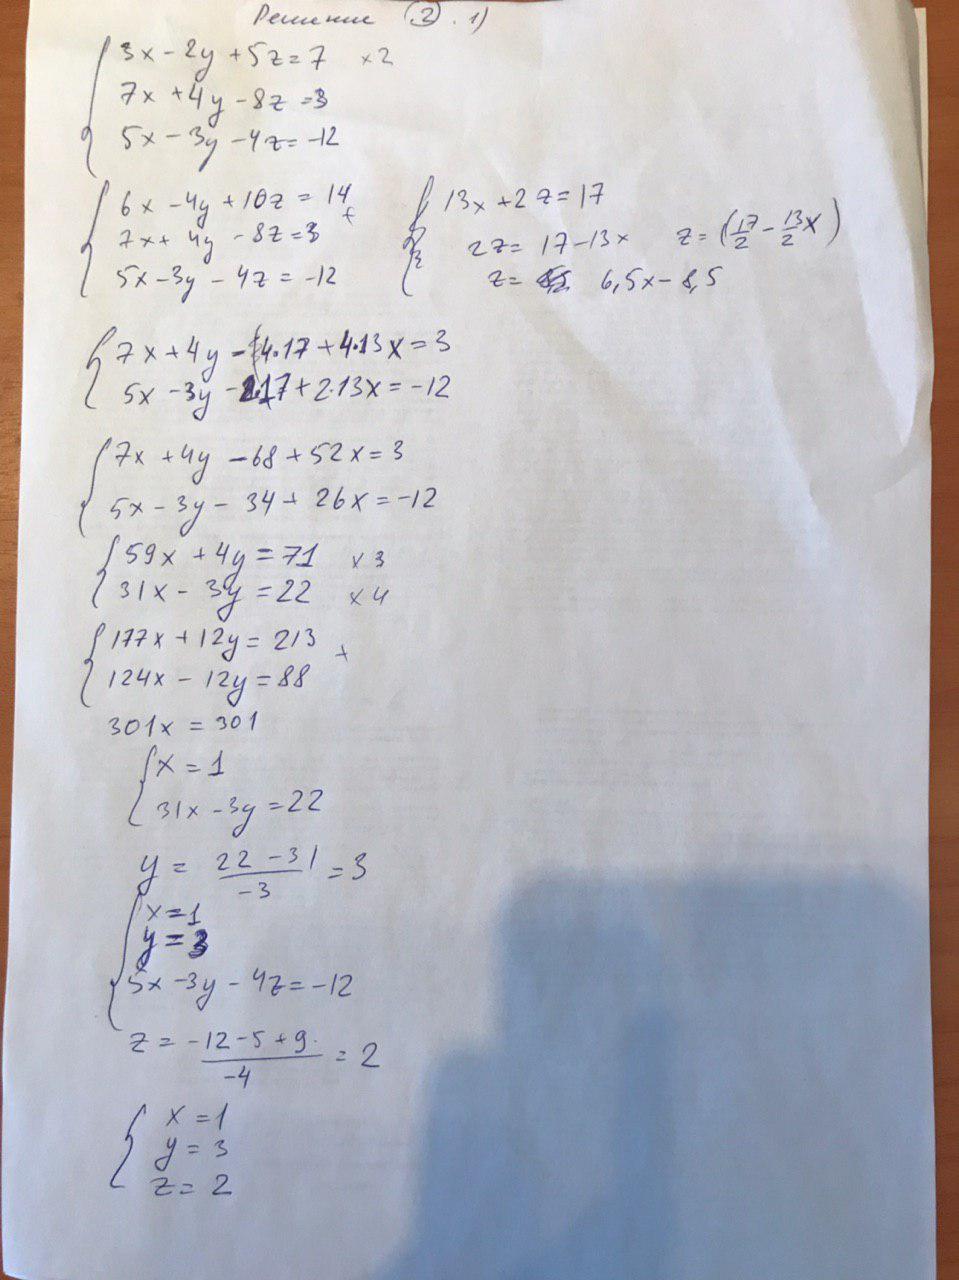 Решение (2). 1)
3x - 2y + 5z = 7 ×2
7x + 4y - 8z = 3
5x - 3y - 4z = -12
6x - 4y + 10z = 14
+
7x + 4y - 8z = 3
5x - 3y - 4z = -12
13x + 2z = 17
2z = 17 - 13x z = (17/2 - 13/2 x)
z = 6,5x - 8,5
7x + 4y - 4·17 + 4·13x = 3
5x - 3y - 2·17 + 2·13x = -12
7x + 4y - 68 + 52x = 3
5x - 3y - 34 + 26x = -12
59x + 4y = 71 ×3
31x - 3y = 22 ×4
177x + 12y = 213
+
124x - 12y = 88
301x = 301
x = 1
31x - 3y = 22
y = (22 - 31)/-3 = 3
x = 1
y = 3
5x - 3y - 4z = -12
z = (-12 - 5 + 9)/-4 = 2
x = 1
y = 3
z = 2